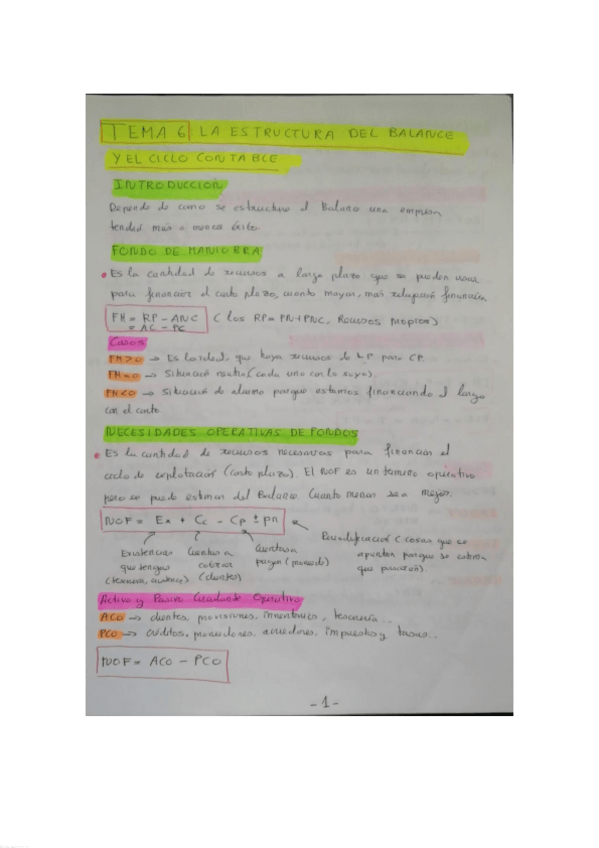 TEMA 6 LA ESTRUCTURA DEL BALANCE
Y EL CICLO CONTABLE
INTRODUCCIÓN
Depende de como se estructure el Balance una empresa
tendrá más o menos éxito.
FONDO DE MANIOBRA
• Es la cantidad de recursos a largo plazo que se pueden usar
para financiar el corto plazo, cuanto mayor, más relajación financiera
FM = RP - ANC (los RP = PN+PNC, Recursos propios)
= AC - PC
Casos
FM>0 → Es lo ideal, que haya recursos de LP para CP.
FM=0 → Situación neutra (cada uno con lo suyo).
FM<0 → Situación de alarma porque estamos financiando el largo
con el corto.
NECESIDADES OPERATIVAS DE FONDOS
• Es la cantidad de recursos necesarias para financiar el
ciclo de explotación (corto plazo). El NOF es un término operativo
pero se puede estimar del Balance. Cuanto menor sea mejor.
NOF = Ex + Cc - Cp ± pn
Periodificación (cosas que se
apuntan porque se sabía
que pasarían).
Existencias
que tengas
Cuentas a
cobrar
(clientes)
Cuentas a
pagar (proveedo)
Activo y Pasivo Circulante Operativo
ACO → clientes, provisiones, inventarios, tesorería...
PCO → créditos, proveedores, acreedores, impuestos y tasas...
NOF = ACO - PCO
- 1 -